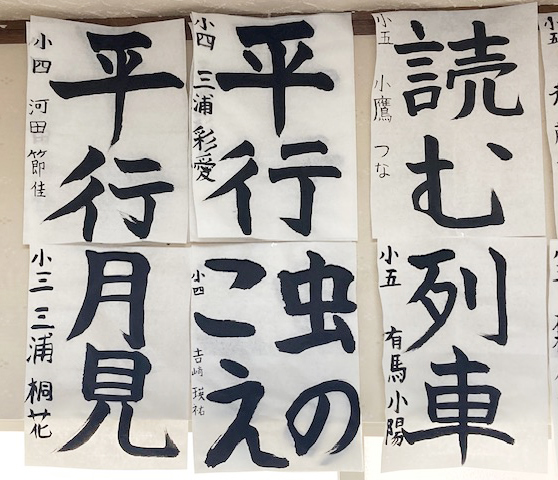 平行
小四 河田 節佳
平行
小四 三浦 彩愛
読む
小五 小鷹 つな
月見
小三 三浦 桐花
虫の
こえ
小四 吉崎 瑛祐
列車
小五 有馬 小陽